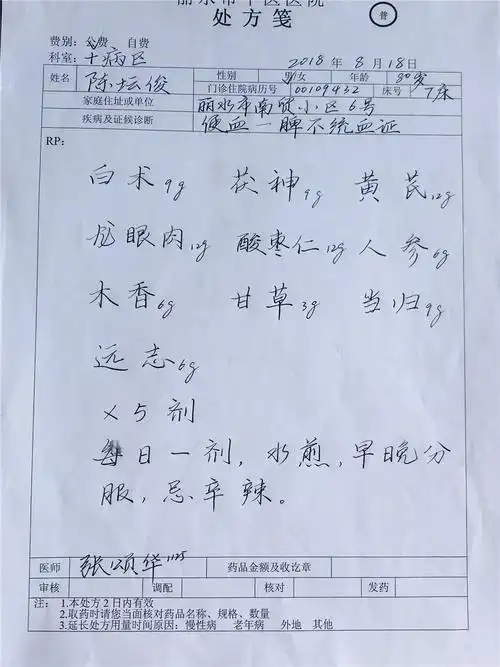 处方笺
普
费别：公费 自费
科室：十病区 2018年8月18日
姓名 陈坛俊 性别 男/女 年龄 30岁
门诊住院病历号 00109432 床号 7床
家庭住址或单位 丽水市南贸小区6号
疾病及证候诊断 便血一脾不统血证
RP:
白术9g 茯神9g 黄芪12g
龙眼肉12g 酸枣仁12g 人参6g
木香6g 甘草3g 当归9g
远志6g
×5剂
每日一剂，水煎，早晚分
服，忌辛辣。
医师 张颂华1125 药品金额及收讫章
审核 调配 核对 发药
注：1.本处方2日内有效
2.取药时请您当面核对药品名称、规格、数量
3.延长处方用量时间原因：慢性病 老年病 外地 其他